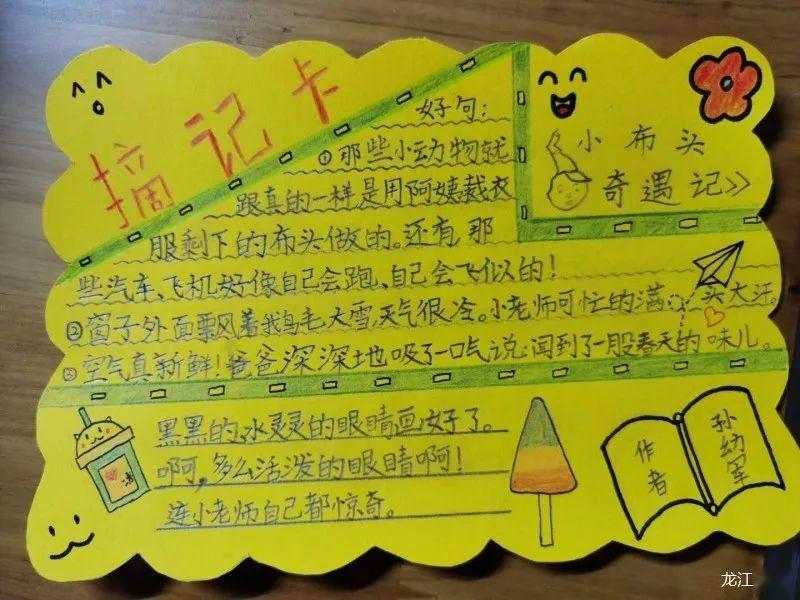 摘记卡
好句：
①那些小动物就
跟真的一样是用阿姨裁衣
服剩下的布头做的。还有,那
些汽车、飞机好像自己会跑、自己会飞似的！
②窗子外面飘着鹅毛大雪,天气很冷。小老师可忙的满头大汗。
③空气真新鲜！爸爸深深地吸了一口气说:闻到了一股春天的味儿。
小布头
奇遇记>>
黑黑的、水灵灵的眼睛画好了。
啊,多么活泼的眼睛啊！
连小老师自己都惊奇。
作者
孙幼军
龙江